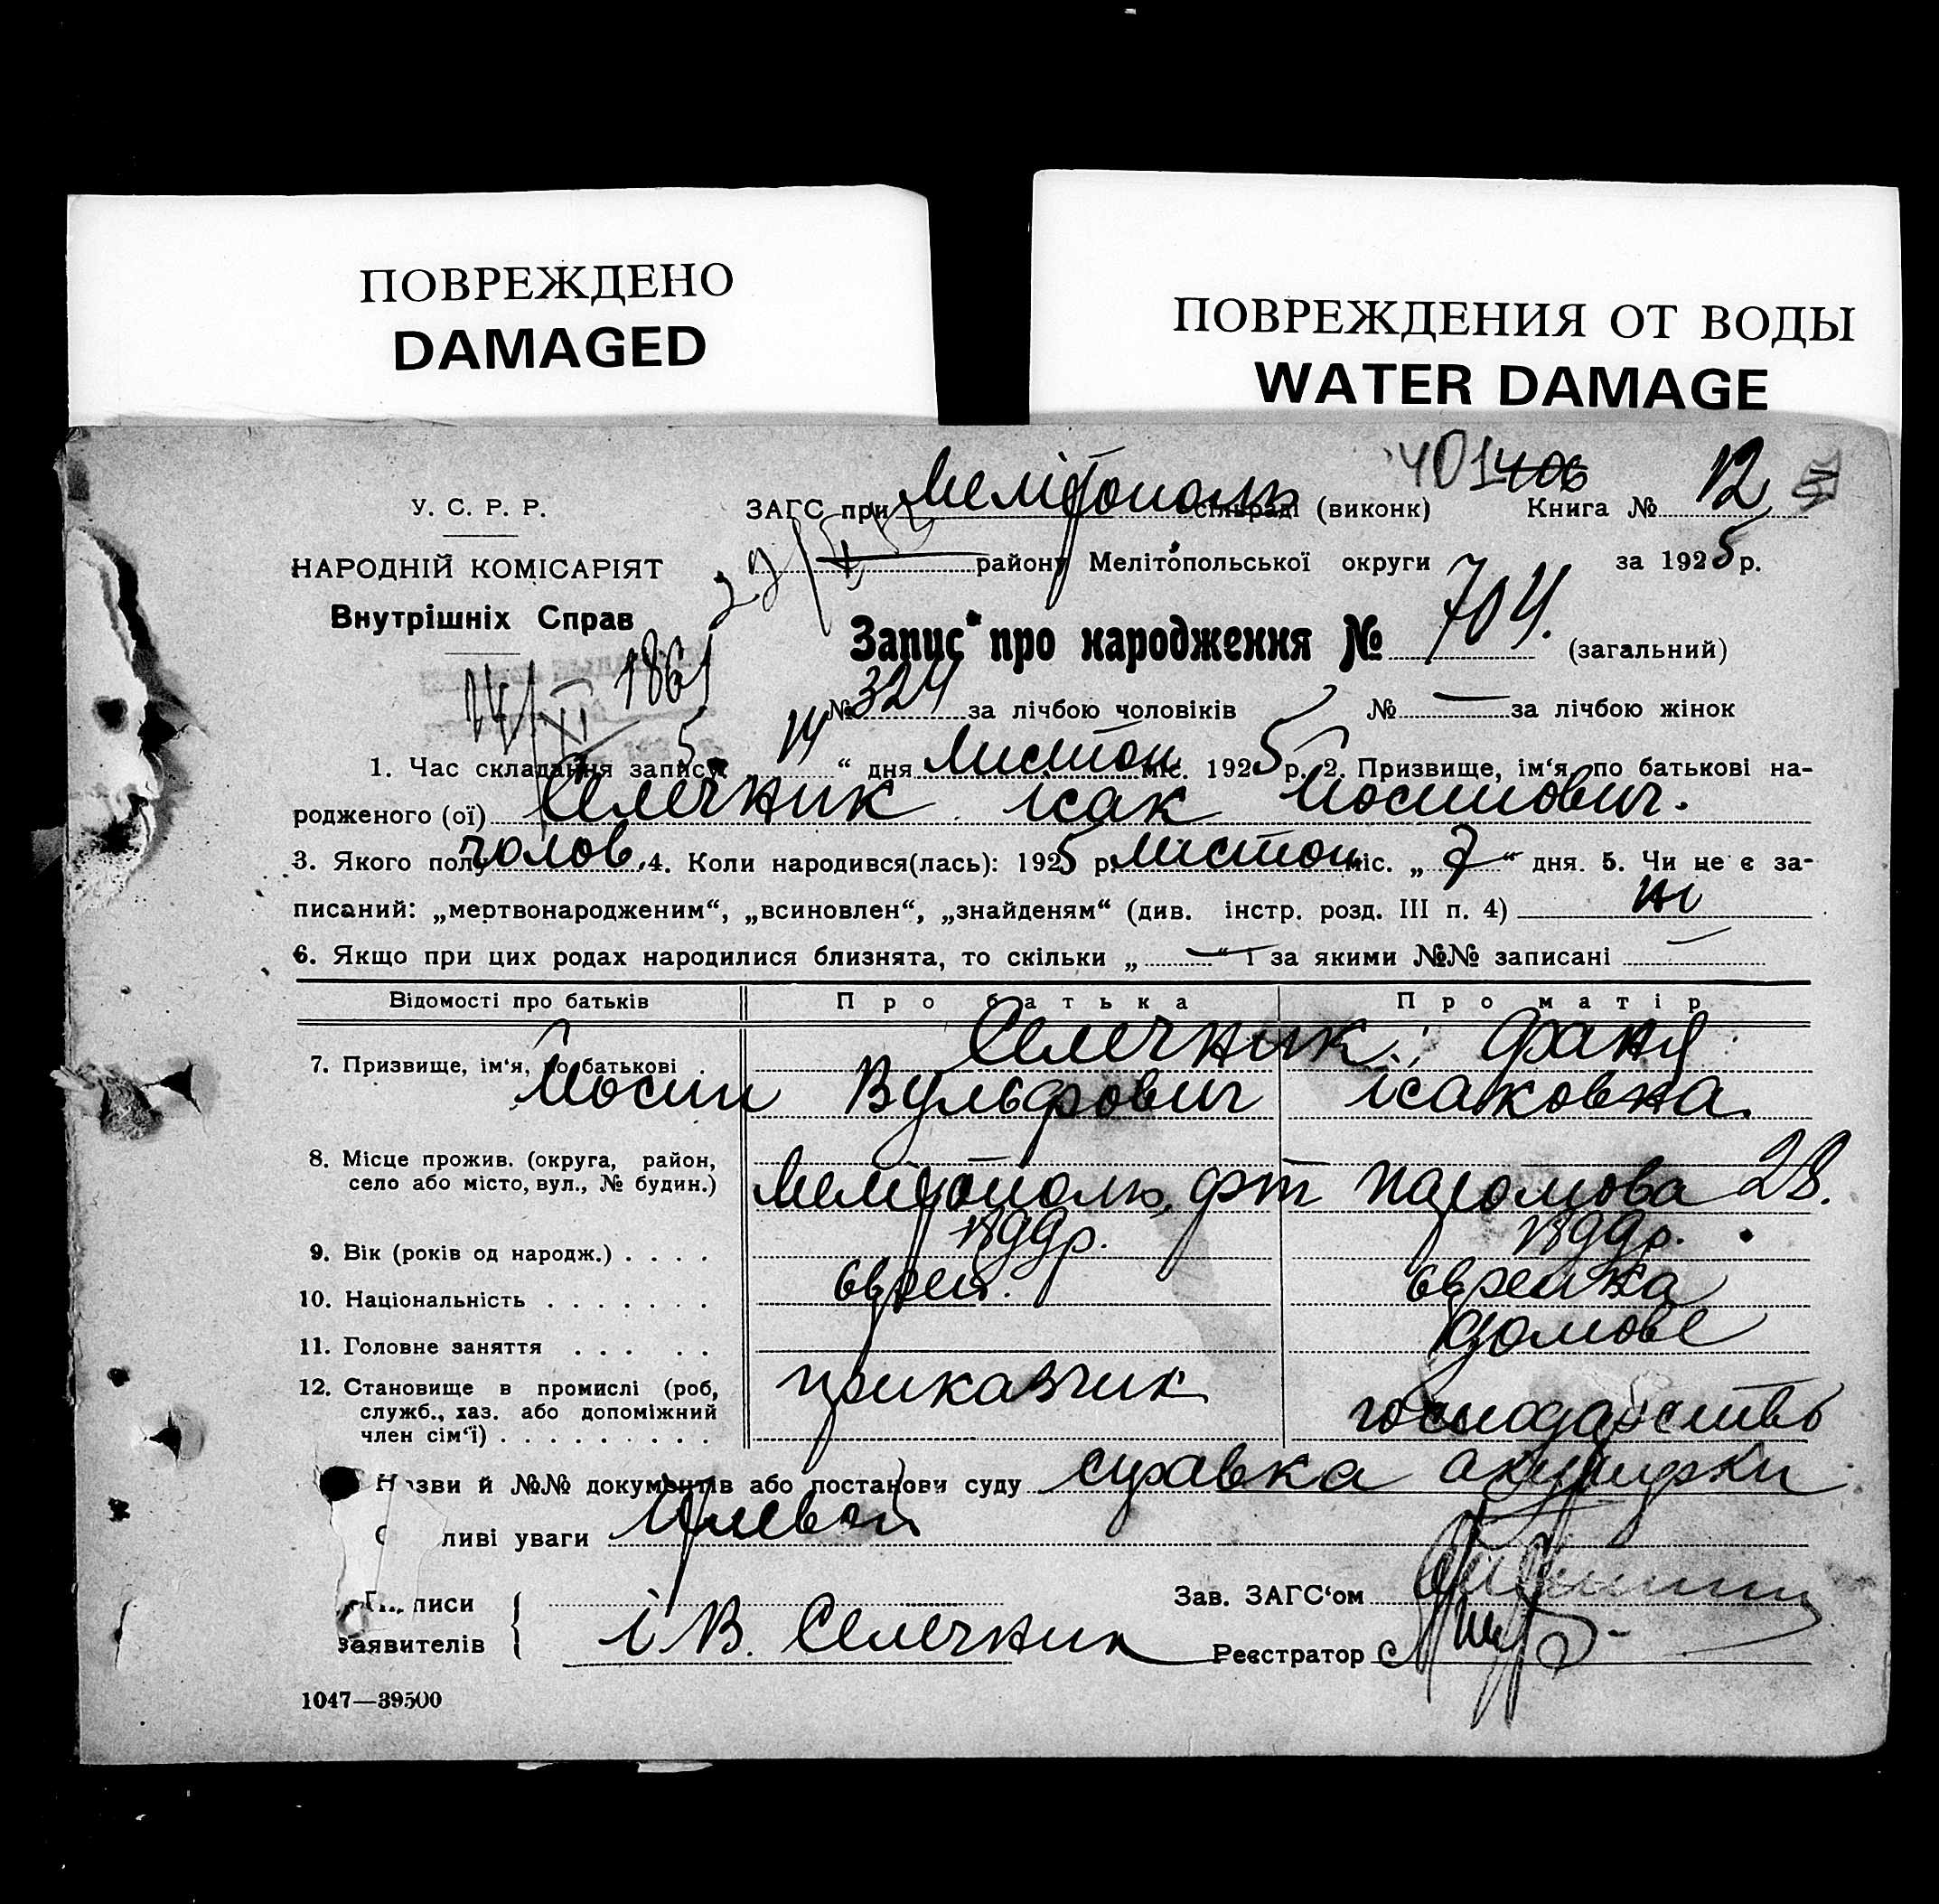 ПОВРЕЖДЕНО
DAMAGED
ПОВРЕЖДЕНИЯ ОТ ВОДЫ
WATER DAMAGE
401 406
У. С. Р. Р.
НАРОДНІЙ КОМІСАРІЯТ
Внутрішніх Справ
ЗАГС при Мелітополь сільраді (виконк) Книга № 12
району Мелітопольської округи за 1925 р.
Запис про народження № 704. (загальний)
14/XI 1861
№ 324 за лічбою чоловіків № — за лічбою жінок
1. Час складання запису 14 “ дня листоп міс. 1925 р. 2. Призвище, ім‘я, по батькові на-
родженого (ої) Селечник ісак Мосипович.
3. Якого полу чолов. 4. Коли народився(лась): 1925 р. листоп міс. „ 7 “ дня. 5. Чи не є за-
писаний: „мертвонародженим“, „всиновлен“, „знайденям“ (див. інстр. розд. III п. 4) ні
6. Якщо при цих родах народилися близнята, то скільки „ — “ і за якими №№ записані —
Відомості про батьків Про батька Про матір
7. Призвище, ім‘я, по батькові Селечник: Фаня
Мосип Вульфович ісаковна.
8. Місце прожив. (округа, район,
село або місто, вул., № будин.) Мелітополь, 28.
9. Вік (років од народж.) . . . .
10. Національність . . . . . . . єврей. єврейка
11. Головне заняття . . . . . домове
12. Становище в промислі (роб, приказчик господарство
служб., хаз. або допоміжний
член сім‘ї) . . . . . . . . .
Назви й №№ документів або постанови суду справка акушерки
ливі уваги
писи
заявителів і В. Селечник
Зав. ЗАГС‘ом
Реєстратор
1047—39500